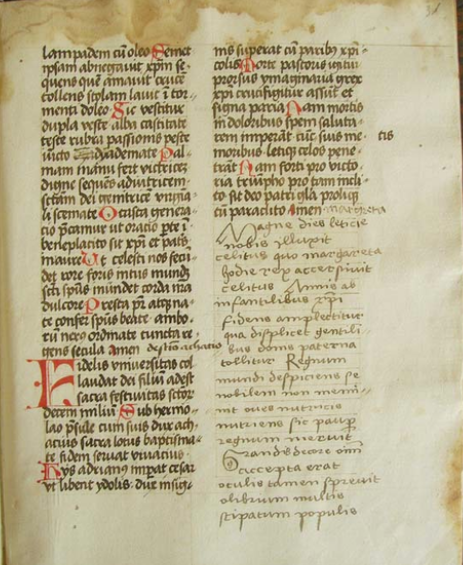 lampadem cū oleo Semet
ipsam abnegavit xpm se
quens quē amavit cruce
collens stolam lavit i tor
menti doleo Sic vestitur
dupla veste alba castitate
teste rubra passionis peste
victo dyademate Pal
mam manu fert victrices
digne sequēs adiutricem
stem
li scemate O cuius genera
cio pcamur ut oracio pte i
beneplacito sit xpi et patis
maure Ut celesti nos feci
det rore foris intus mundi
scti spūs mundet corda ira
dulcore Presta pr atq; na
te confer spūs beate ambo
rū nexo ordinate cuncta re
gens secula Amen de scto achacio
Fidelis vniversitas col
laudat dei filiū adest
sacra festivitas sctor
decem miliū Sub hermo
lao psule cum suis dux ach
acius sacra lotus baptisma
te fidem servat vivacius
Hys adrianus impat cesar
vt libent ydolis dux insigi
mis superat cū paribus xpi
colis Morte pastoris
prorsus ymaginaria grex
xpi crucifigitur assūt et
signa paria Nam mortis
in doloribus spem saluta
rem imperāt cūc suis me tis
moribus letiq celos pene
trāt Nam forti pro victo
ria triūpho pro tam incli
to sit deo patri gla proliq;
cū paraclito Amen Margareta
Magne dies leticie
nobis illuxit
celitus quo margareta
hodie rex accersivit
celitus Annis ab
infantilibus xpi
fidens amplectitur
qua displicet gentili
bus domus paterna
tollitur Regnum
mundi despiciens se
nobilem non memi
nit oves nutricis
nutriens sic paup
regnum meruit
Grandi decore oim
accepta erat
oculis tamen sprevit
olibrum multis
stipatum populis